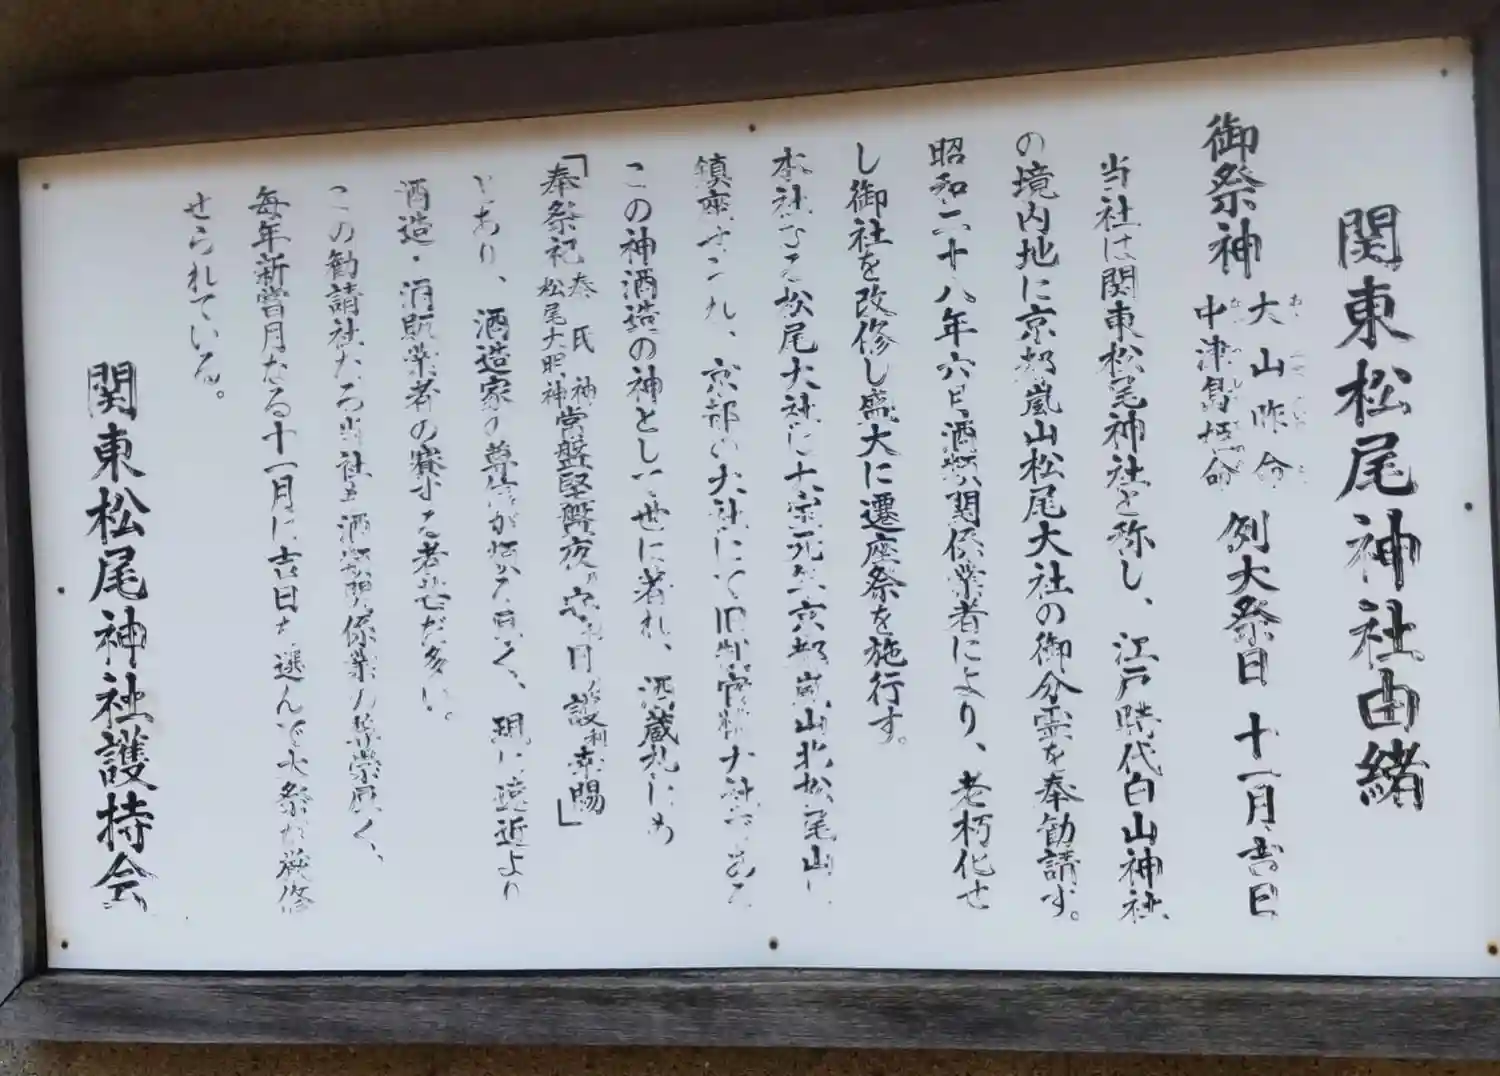 関東松尾神社由緒
御祭神 大山咋命 中津島姫命 例大祭日 十一月吉日
当社は関東松尾神社と称し、江戸時代白山神社
の境内地に京都嵐山松尾大社の御分霊を奉勧請す。
昭和二十八年六月酒類関係業者により、老朽化せ
し御社を改修し盛大に遷座祭を施行す。
本社なる松尾大社は大宝元年京都嵐山北松尾山に
鎮座ましまされ、京都の大社にて旧制官幣大社である
この神酒造の神として世に著れ、酒蔵札にも
「奉祭祀 秦氏神 松尾大明神 常盤堅盤夜守日護 幸賜」
とあり、酒造家の尊信が極めて厚く、現に遠近より
酒造・酒販業者の賽する者甚だ多い。
この勧請社なる当社も酒類関係業の尊崇厚く、
毎年新嘗月なる十一月に吉日を選んで大祭が厳修
せられている。
関東松尾神社護持会